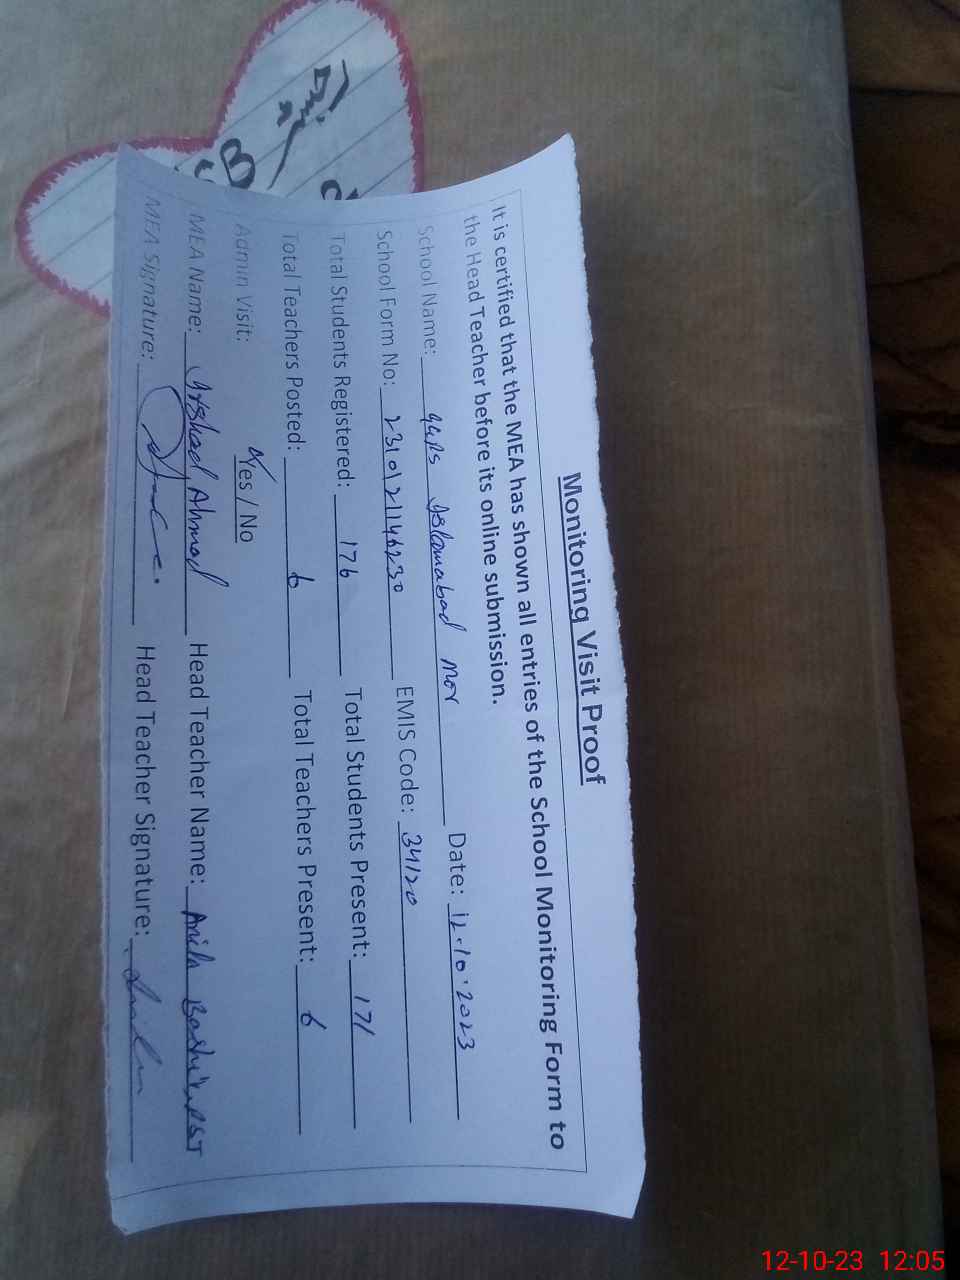 Monitoring Visit Proof
It is certified that the MEA has shown all entries of the School Monitoring Form to
the Head Teacher before its online submission.
School Name: GGPS Islamabad Mor Date: 12.10.2023
School Form No: EMIS Code: 34120
Total Students Registered: 176 Total Students Present: 171
Total Teachers Posted: 6 Total Teachers Present: 6
Admin Visit: Yes / No
MEA Name: Irshad Ahmad Head Teacher Name: Bashir PST
MEA Signature: Head Teacher Signature:
12-10-23 12:05